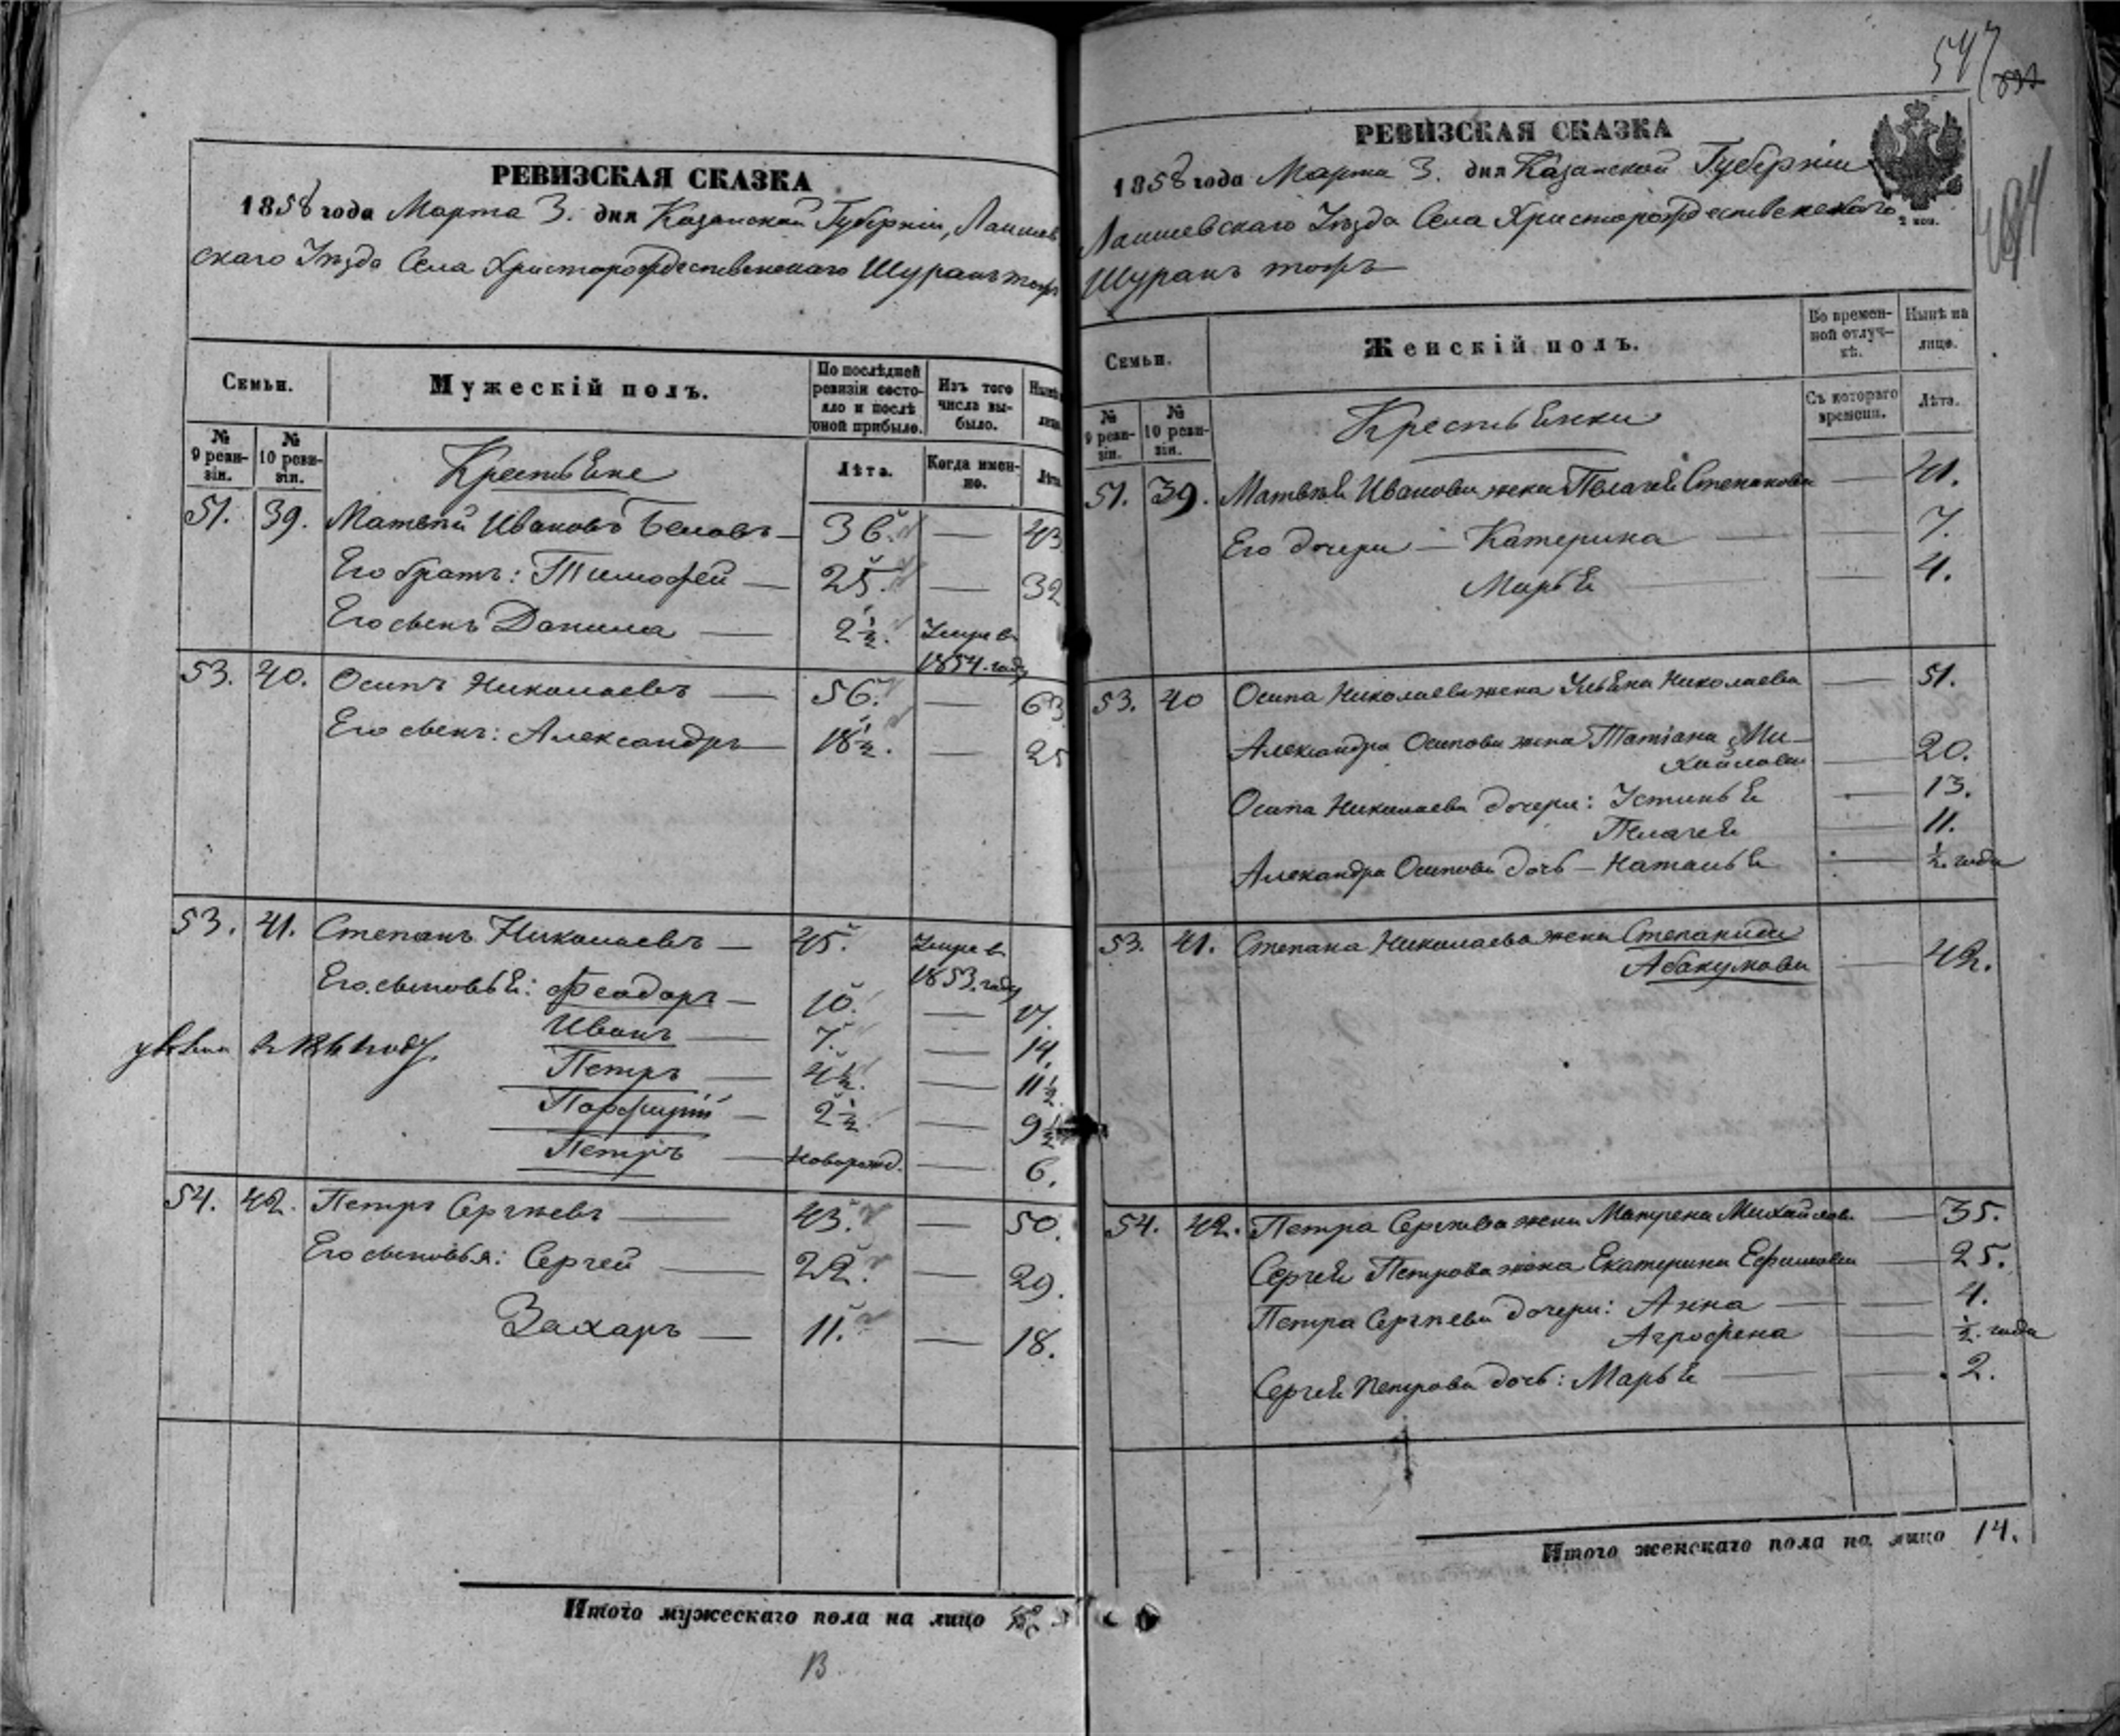 РЕВИЗСКАЯ СКАЗКА
1858 года Марта 3. дня Казанской Губерніи, Лаишев
скаго Уѣзда Села Христорождественскаго Шуранъ тожъ
Семьи.
Мужескій полъ.
По послѣдней ревизіи состо-
яло и послѣ
оной прибыло.
Изъ того
числа вы-
было.
№
9 реви-
зіи.
№
10 реви-
зіи.
Крестьяне
Лѣта.
Когда имен-
но.
51. 39. Матвѣй Ивановъ Беловъ — 36. — 43
Его братъ: Тимофей — 25. — 32
Его сынъ Данила — 2½. Умре въ
1854. году
53. 40. Осипъ Николаевъ — 56. — 63
Его сынъ: Александръ — 18½. — 25
53. 41. Степанъ Николаевъ — 45. Умре въ
1853. году
Его сыновья: Феодоръ — 10. — 17.
Иванъ — 7. — 14.
Петръ — 4½. — 11½.
Порфирій — 2½. — 9½
Петръ — новорожд. — 6.
54. 42. Петръ Сергѣевъ — 43. — 50.
Его сыновья: Сергей — 22. — 29.
Захаръ — 11. — 18.
Итого мужескаго пола на лицо
547
РЕВИЗСКАЯ СКАЗКА
1858 года Марта 3. дня Казанской Губерніи
Лаишевскаго Уѣзда Села Христорождественскаго
Шуранъ тожъ
2 коп.
Семьи.
Женскій полъ.
Во времен-
ной отлуч-
кѣ.
Нынѣ на
лицо.
№
9 реви-
зіи.
№
10 реви-
зіи.
Крестьянки
Съ котораго
времени.
Лѣта.
51. 39. Матвѣя Иванова жена Пелагея Степанова — 41.
Его дочери — Катерина — 7.
Марья — 4.
53. 40 Осипа Николаева жена Ульяна Николаева — 51.
Александра Осипова жена Татіана Ми-
хайлова — 20.
Осипа Николаева дочери: Устинья — 13.
Пелагея — 11.
Александра Осипова дочь — Наталья — ½. года
53. 41. Степана Николаева жена Степанида
Абакумова — 42.
54. 42. Петра Сергѣева жена Матрена Михайлов. — 35.
Сергея Петрова жена Екатерина Ефимова — 25.
Петра Сергѣева дочери: Анна — 4.
Агрофена — ½. года
Сергея Петрова дочь: Марья — 2.
Итого женскаго пола на лицо 14.